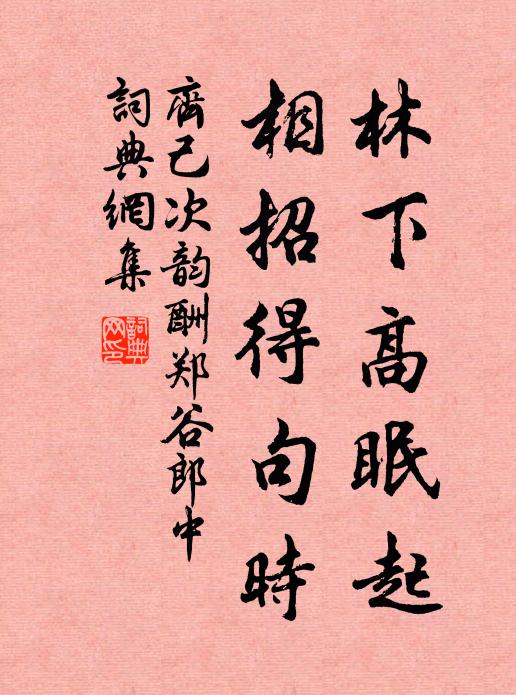 林下高眠起
相招得句時
齊己次韵酬郑谷郎中
詞典網集
詞典网印